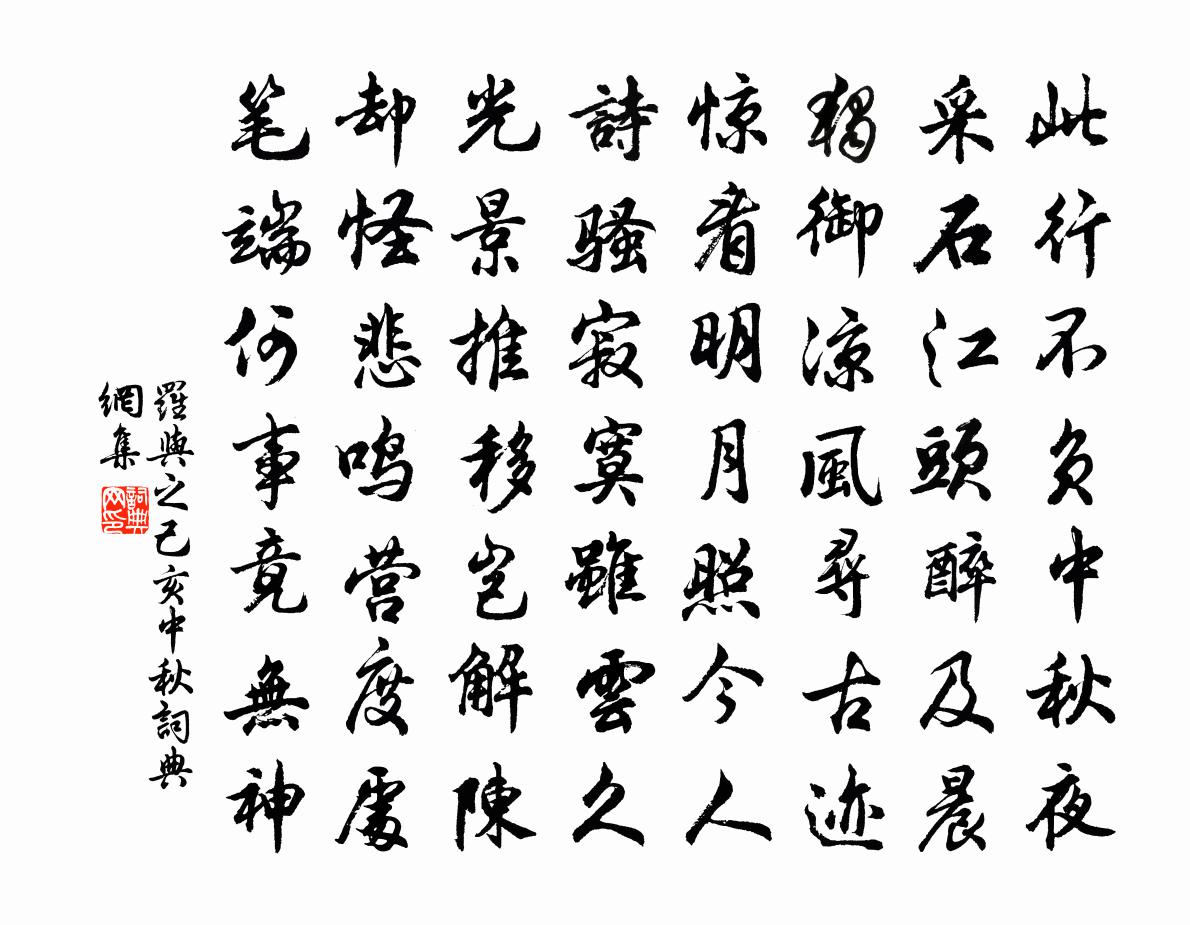 此行不负中秋夜
采石江頭醉及晨
獨御凉風尋古迹
惊看明月照今人
詩骚寂寞雖雲久
光景推移岂解陳
却怪悲鸣营度處
笔端何事竟無神
羅與之己亥中秋詞典
網集
詞典網印